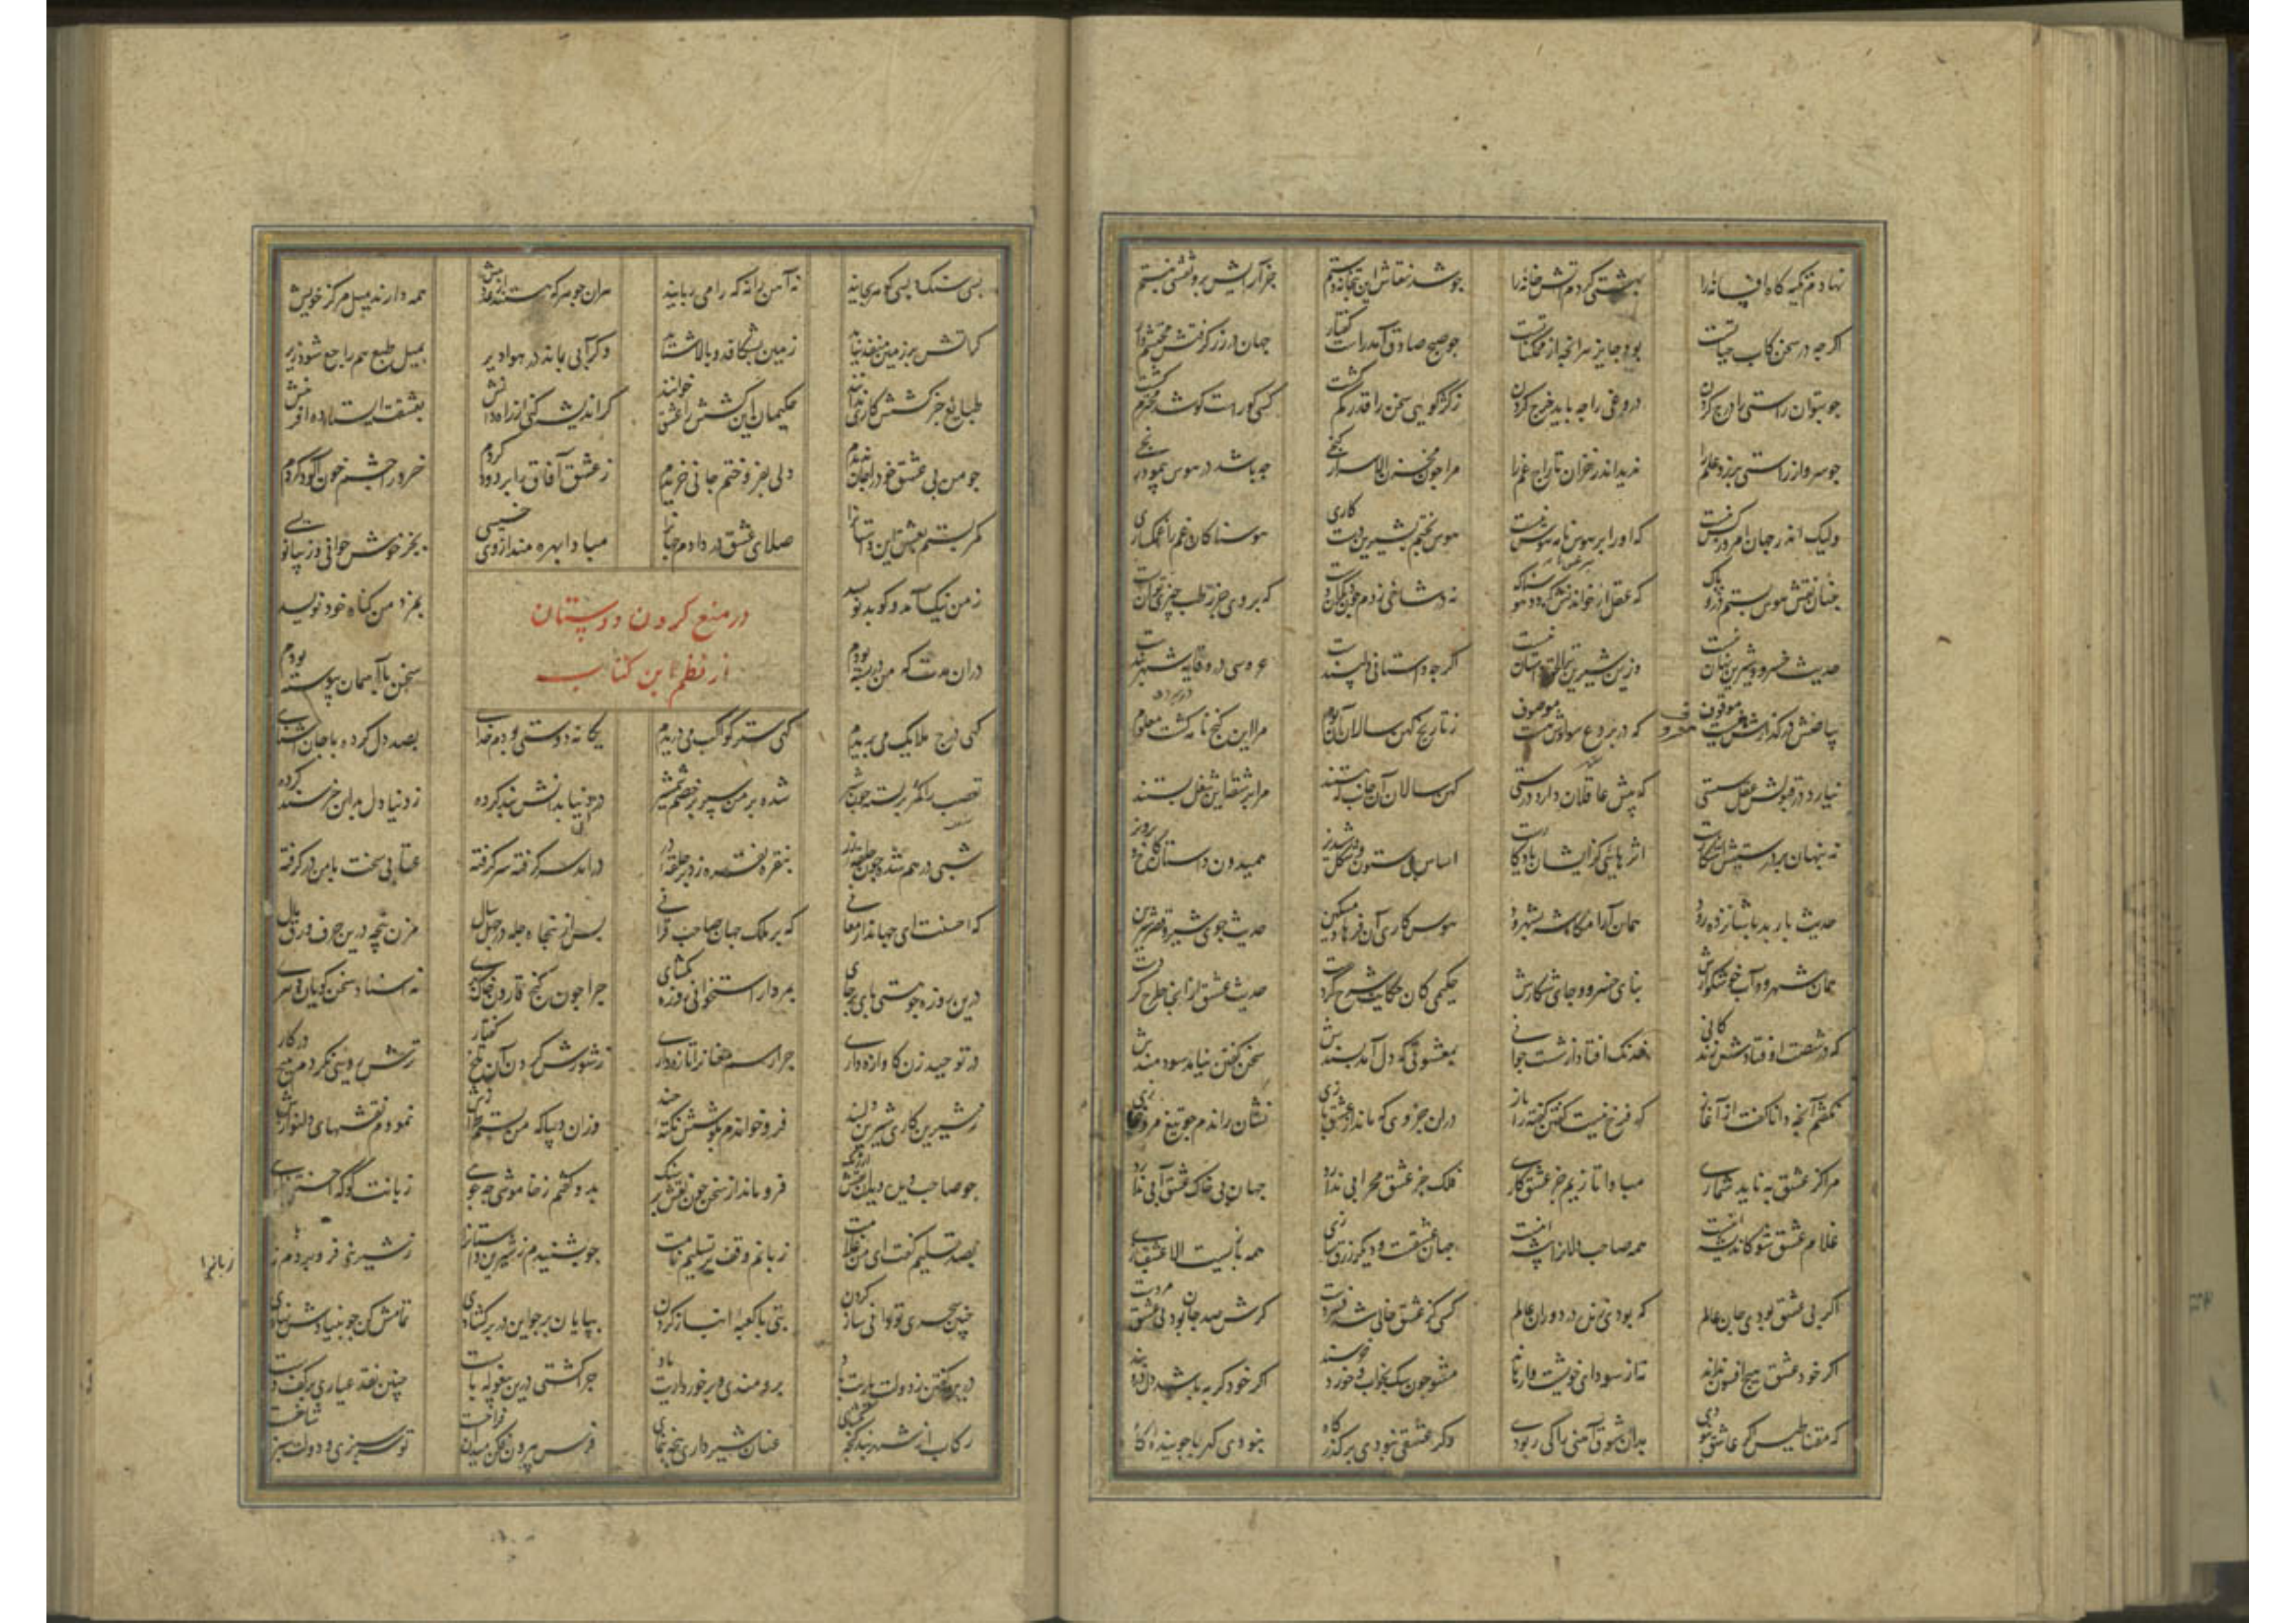 نهادم تکیه گاه افسانه را بهشتی کردم آتش خانه را چو شد نقاش این بتخانه دستم جز آرایش برو نقشی نبستم
اگرچه در سخن کاب حیاتست بود جایز هرانچه از ممکناتست چو صبح صادق آمد راست گفتار جهان در زر گرفتش محتشم وار
چو بتوان راستی را درج کردن دروغی را چه باید خرج کردن ز کژ گویی سخن را قدر کم گشت کسی کو راست گو شد محترم گشت
چو سرو از راستی برزد علم را ندید اندر خزان تاراج غم را مرا چون مخزن الاسرار گنجی چه باشد در هوس پیمود رنجی
ولیک اندر جهان امروز کس نیست که او را بر هوس نامه هوس نیست هوس پختم بشیرین دست کاری هوسناکان غم را غمگساری
چنان نقش هوس بستم درو پاک که عقل از خواندنش گردد هوسناک نه در شاخی زدم چون دیگران دست که بر وی جز رطب چیزی توان بست
حدیث خسرو و شیرین نهان نیست وزین شیرین تر الحق داستان نیست اگرچه داستانی دلپسندست عروسی در وقایه شهربندست
بیاضش در گذارش نیست موقوف که در بردع سوادش هست موصوف ز تاریخ کهن سالان آن بوم مرا این گنج نامه گشت معلوم
نیارد در قبولش عقل سستی که پیش عاقلان دارد درستی کهن سالان آن جانب که هستند مرا بر شقه این شغل بستند
نه پنهان بر درستیش آشکارست اثرهایی کز ایشان یادگارست اساس بیستون و شکل شبدیز همیدون داستان کاخ پرویز
حدیث باربد با ساز ده رود همان آرامگاه شه بشهرود هوس کاری آن فرهاد مسکین حدیث جوی شیر و قصر شیرین
همان شهرود و آب خوشگوارش بنای خسرو و جای شکارش حکیمی کان حکایت شرح کردست حدیث عشق ازانجا طرح کردست
که در شصت اوفتادش زندگانی خدنگ افتاد از شست جوانی بمعشوقی که دل آمد پسندش سخن گفتن نیامد سودمندش
نگفتم آنچه دانا گفت از آغاز که فرخ نیست گفتن گفته را باز دران جزوی که ماند از عشق بازی نشان راندم چو تیغ مرد غازی
مرا کز عشق به ناید شماری مبادا تا زیم جز عشق کاری فلک جز عشق محرابی ندارد جهان بی خاک عشق آبی ندارد
غلام عشق شو کاندیشه اینست همه صاحب دلان را پیشه اینست جهان عشقست و دیگر زرق سازی همه بازیست الا عشق بازی
اگر بی عشق بودی جان عالم که بودی زنده در دوران عالم کسی کز عشق خالی شد فسردست گرش صد جان بود بی عشق مردست
اگر خود عشق هیچ افسون نداند نه از سودای خویشت وارهاند مشو چون سگ بخواب و خورد خرسند اگر خود گربه باشد دل درو بند
که مقناطیس گر عاشق نبودی بدان شوق آهنی را کی ربودی وگر عشقی نبودی بر گذرگاه نبودی کهربا جوینده کاه
بسی سنگ و بسی گوهر بجایند نه آهن را نه که را می ربایند هران جوهر که هستند از عدد بیش همه دارند میل مرکز خویش
گر آتش بر زمین منفذ نیابد زمین بشکافد و بالا شتابد وگر آبی بماند در هوا دیر بمیل طبع هم راجع شود زیر
طبایع جز کشش کاری ندانند حکیمان این کشش را عشق خوانند گر اندیشه کنی از راه دانش بعشقست ایستاده آفرینش
چو من بی عشق خود را جان ندیدم دلی بفروختم جانی خریدم ز عشق آفاق را پر دود کردم خرد را چشم خون آلود کردم
کمر بستم بعشق این داستان را صلای عشق در دادم جهان را مبادا بهره مند از وی خسیسی بجز خوش خوانی و زیبا نویسی
ز من نیک آمد و گو بد نویسد بمزد من گناه خود نویسد
در منع کردن دوستان
از نظم این کتاب
دران مدت که من در بسته بودم سخن با آسمان پیوسته بودم
گهی برج ملایک می بریدم گهی ستر کواکب می دریدم یگانه دوستی بودم خدایی بصد دل کرده با جان آشنایی
تعصب را کمر بسته چون شیر شده بر من سپر بر خصم شمشیر در دنیا بدانش بند کرده ز دنیا دل بدین خرسند کرده
شبی در هم شده چون حلقه زر بنقره نقره زد بر حلقه در درآمد سر گرفته سر گرفته عتابی سخت با من در گرفته
که احسنت ای جهاندار معانی که بر ملک جهان صاحب قرانی پس از پنجاه چله در چهل سال مزن پنجه درین حرف ورق مال
درین روزه چو هستی پای بر جای بمردار استخوانی روزه مگشای چرا چون گنج قارون خاک بهری نه استاد سخن گویان دهری
در توحید زن کاوازه داری چرا رسم مغانرا تازه داری ز شورش کردن آن تلخ گفتار ترش رویی نکردم هیچ در کار
ز شیرین کاری شیرین دلبند فرو خواندم بگوشش نکته چند وزان دیبا که من بستم طرازش نمودم نقشهای دلنوازش
چو صاحب دین دید آن نقش ارژنگ فرو ماند از سخن چون نقش بر سنگ بدو گفتم ز خاموشی چه جویی زبانت کو که احسنتی بگویی
بصد تسلیم گفت ای من غلامت زبانم وقف بر تسلیم نامت چو بشنیدم ز شیرین داستانرا ز شیرینی فرو بردم زبانرا
چنین سحری تو دانی ساز کردن بتی با کعبه انباز کردن بپایان بر چو این در بر گشادی تمامش کن چو بنیادش نهادی
درین گفتن ز دولت یاریت باد برومندی و برخورداریت باد چرا گشتی درین بیغوله پابست چنین نقد عیاری بر کف دست
رکاب از شهربند گنجه بگشای عنان شیر داری پنجه بنمای فرس بیرون فکن میدان فراخست تو سرسبزی و دولت سبز شاخست